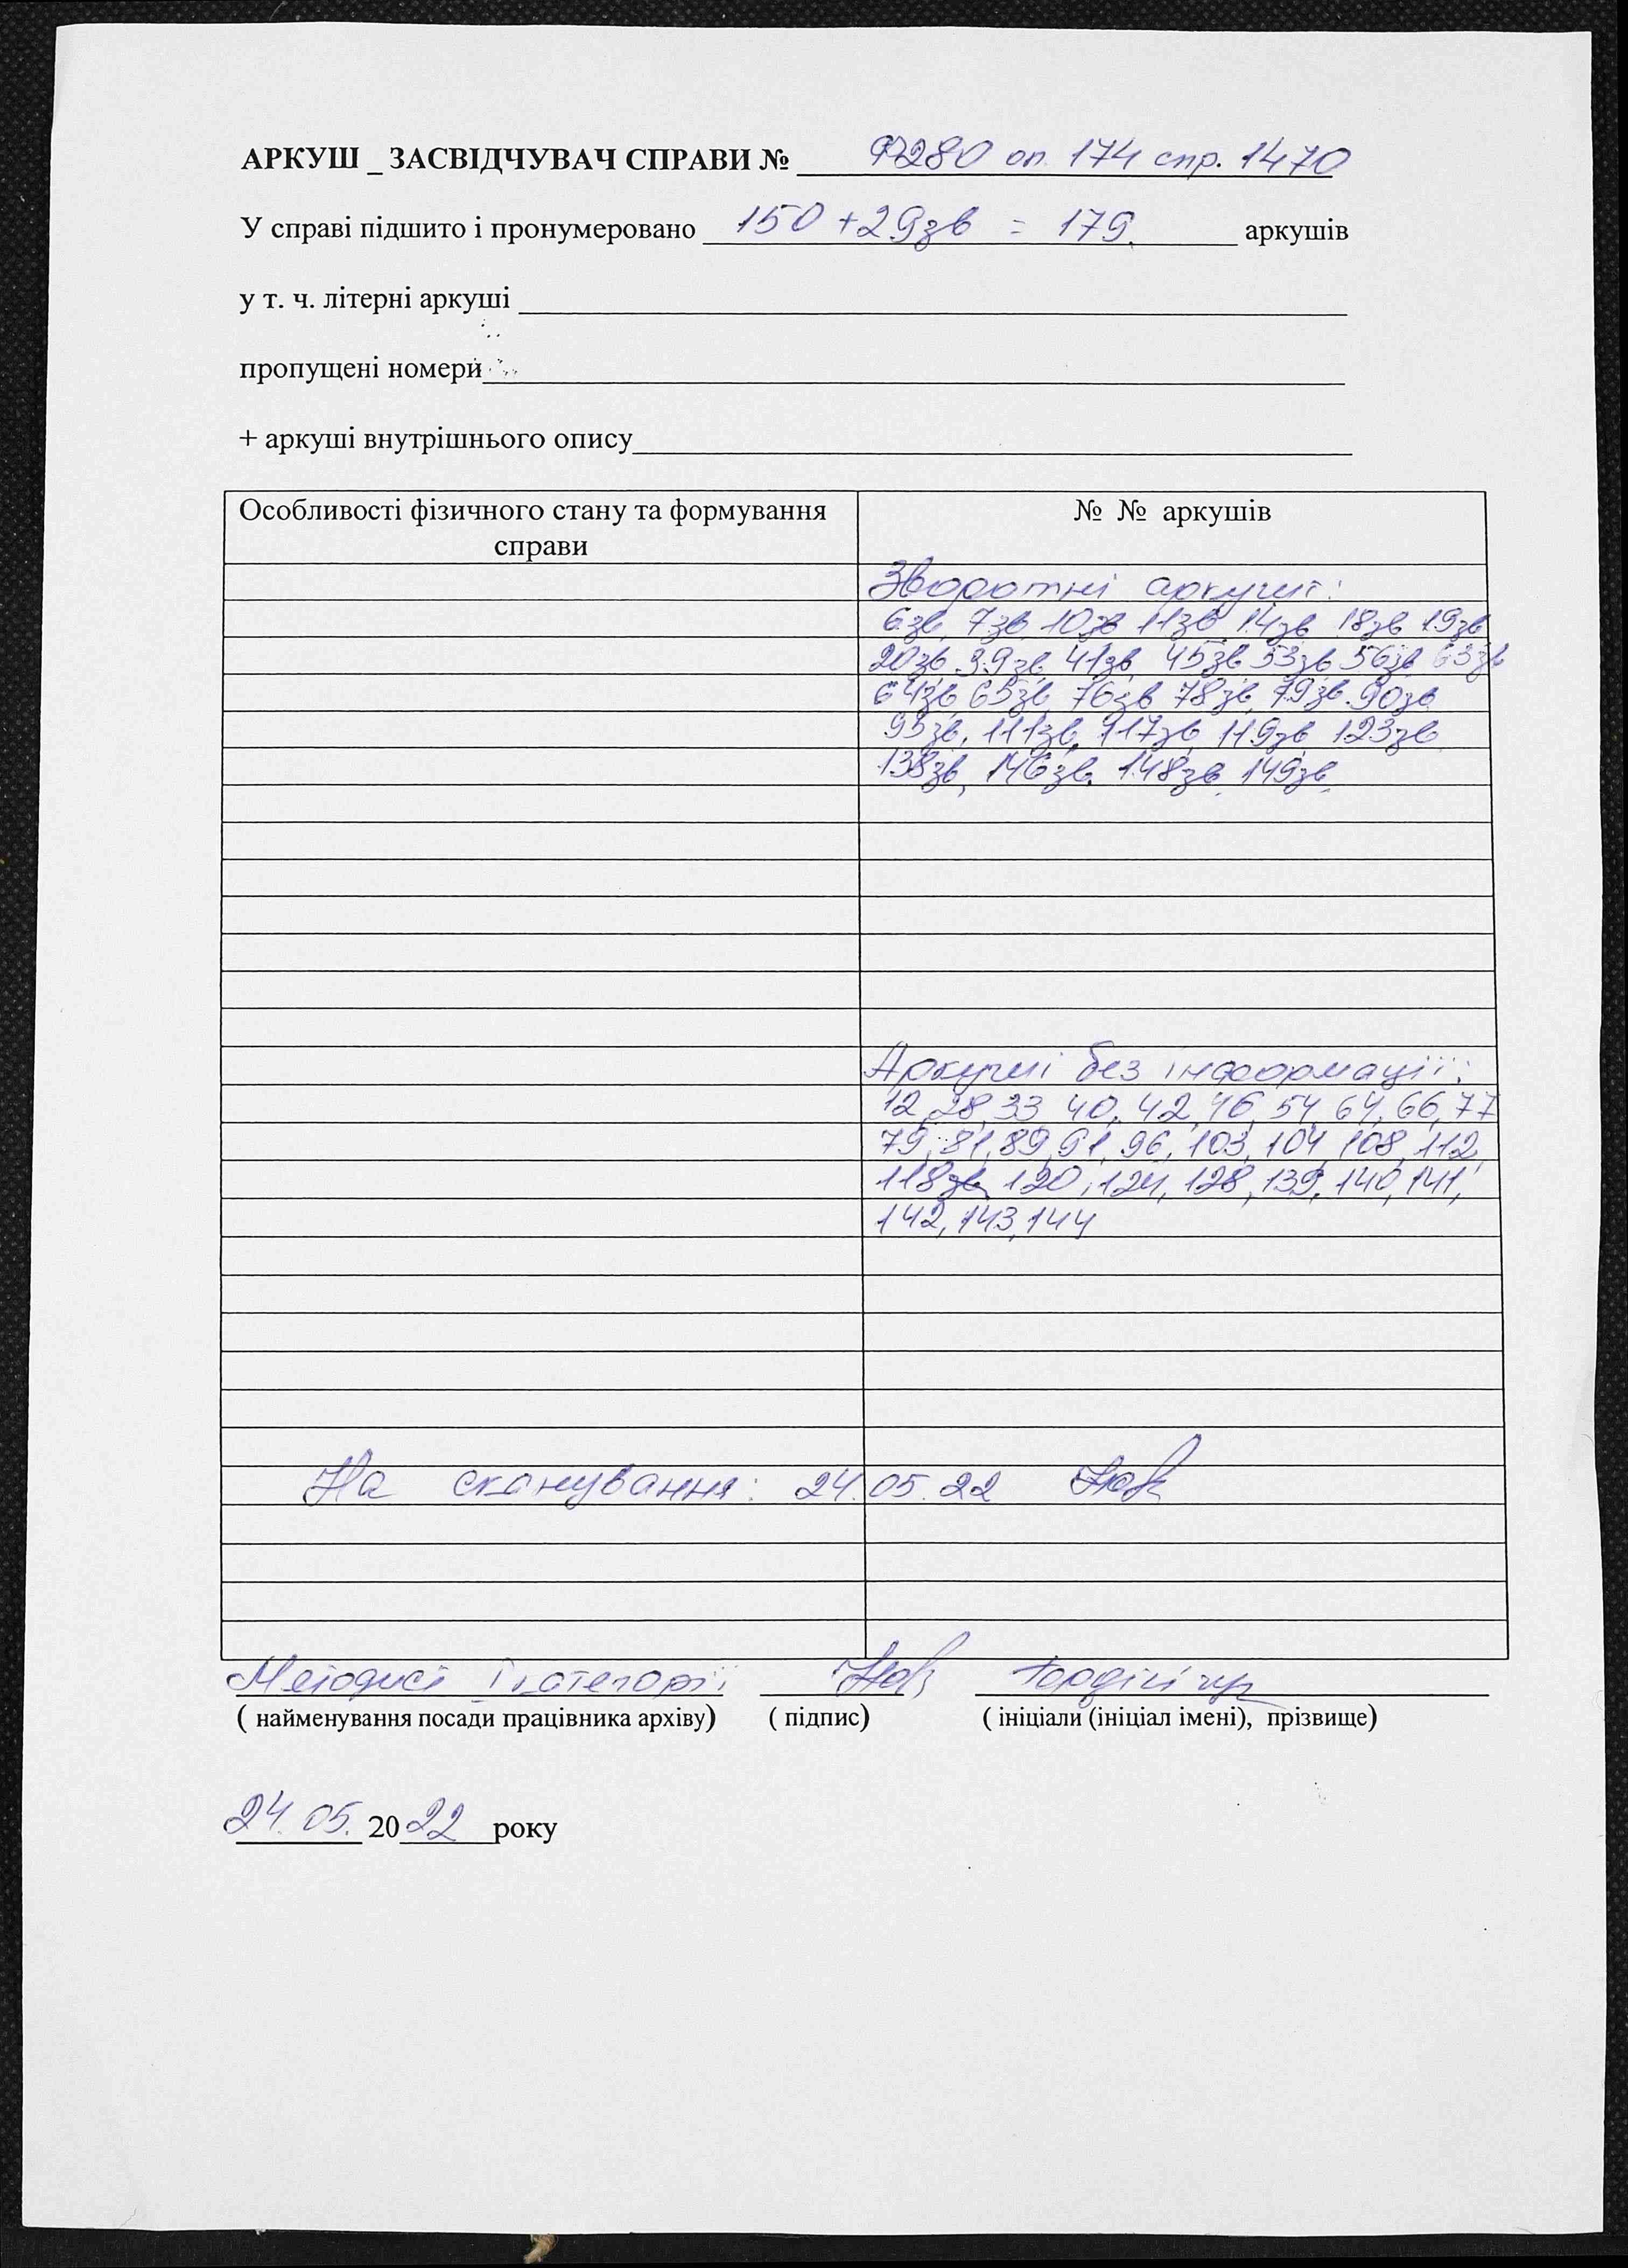 АРКУШ _ ЗАСВІДЧУВАЧ СПРАВИ № Ф280 оп. 174 спр. 1470
У справі підшито і пронумеровано 150 + 29зв = 179. аркушів
у т. ч. літерні аркуші
пропущені номери
+ аркуші внутрішнього опису
Особливості фізичного стану та формування справи № № аркушів
Зворотні аркуші:
6зв, 7зв, 10зв 11зв 14зв 18зв 19зв
20зв 39зв, 41зв, 45зв 53зв 56зв 63зв
64зв 65зв, 76зв 78зв, 79зв. 90зв
95зв, 111зв, 117зв 119зв 123зв
138зв, 146зв, 148зв, 149зв.
Аркуші без інформації:
12, 28, 33 40, 42, 46, 54, 64, 66, 77
79, 81, 89, 91, 96, 103, 104, 108, 112,
118зв, 120, 124, 128, 139, 140, 141,
142, 143, 144
На сканування: 24.05.22
Методист І категорії
( найменування посади працівника архіву) ( підпис) ( ініціали (ініціал імені), прізвище)
24.05. 2022 року